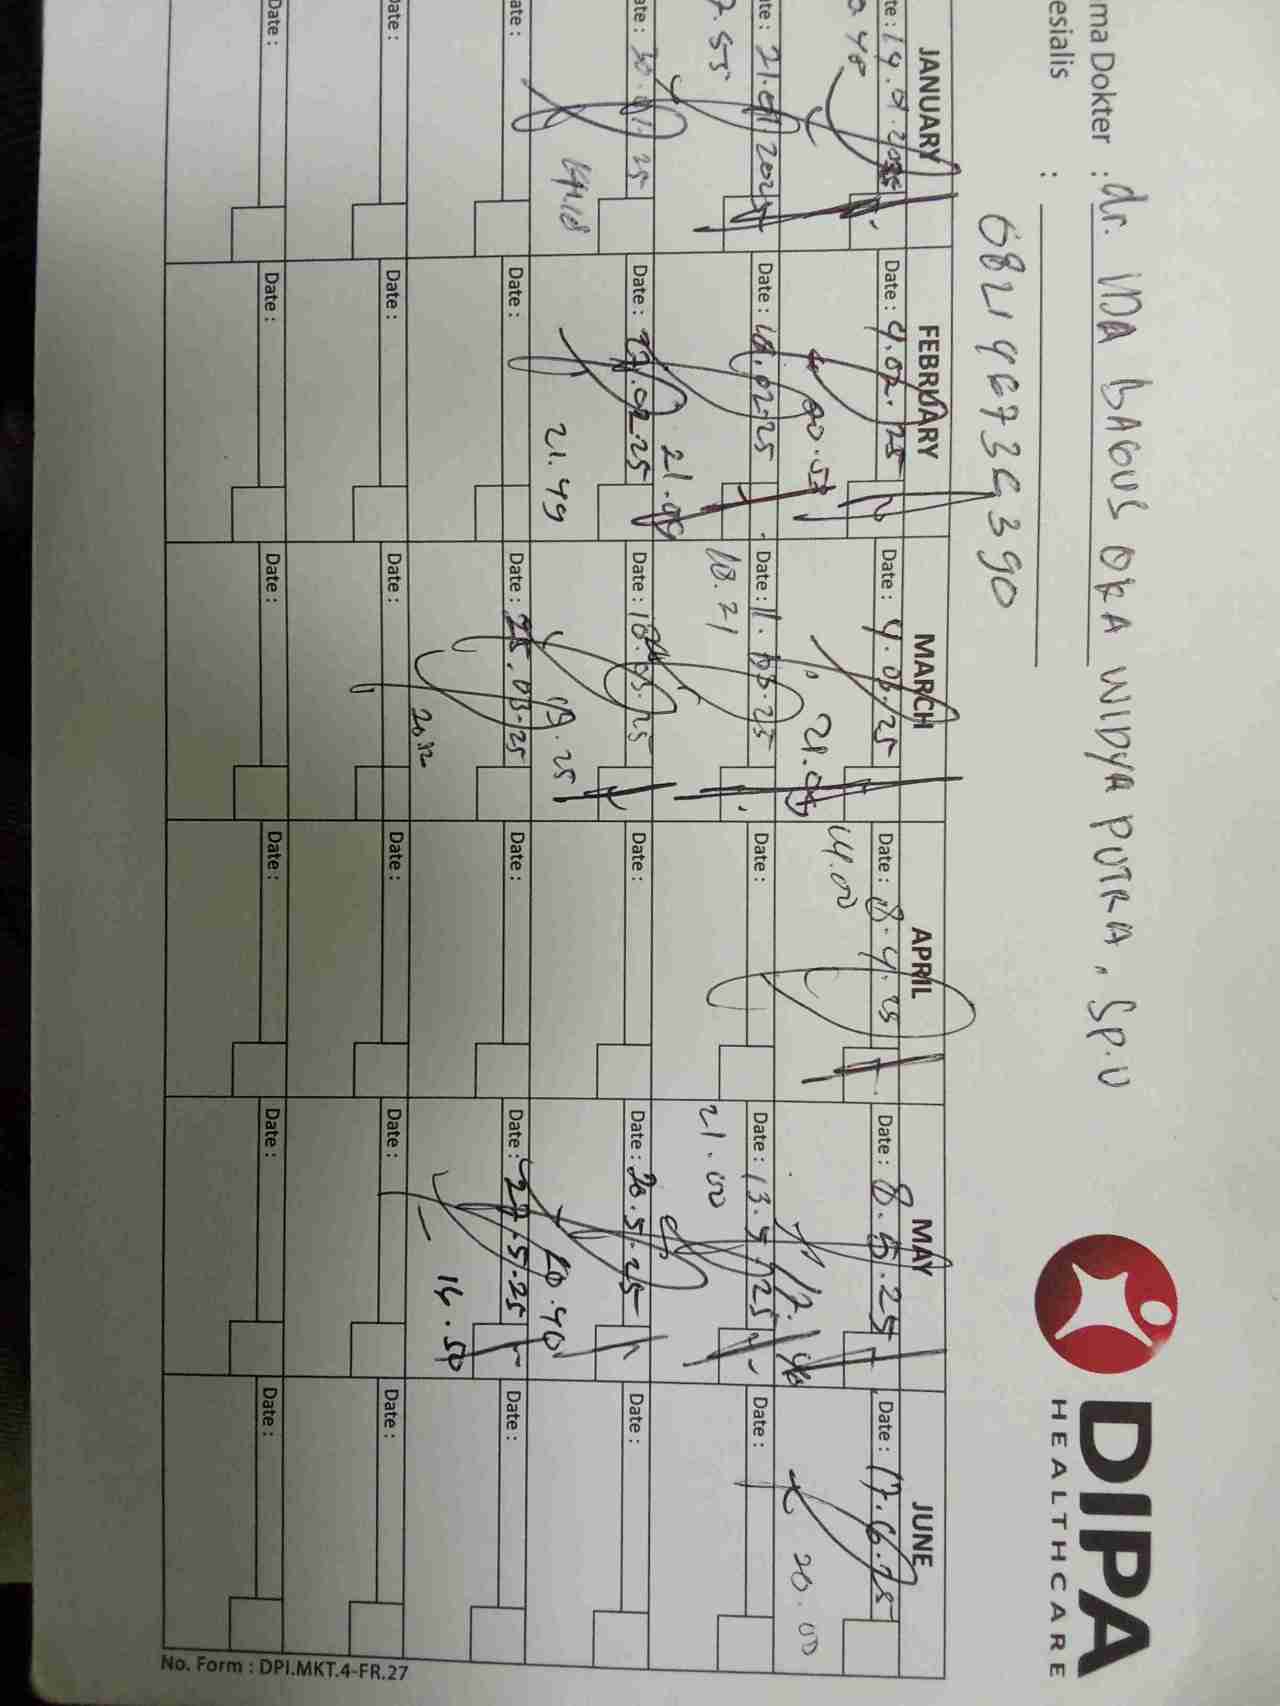 DIPA
HEALTHCARE
ma Dokter : dr. IDA BAGUS OKA WIDYA PUTRA, SP.U
esialis :
JANUARY FEBRUARY MARCH APRIL MAY JUNE
te : 14.01.2025 Date : 4.02.25 Date : 4.03.25 Date : 8.4.25 Date : 8.5.25 Date : 17.6.25
21.05 14.00 17. 20.00
ate : 21.01.2025 Date : 18.02.25 Date : 11.03.25 Date : Date : 13.5.25 Date :
7.55 21.05 18.21 21.00
ate : 30.01.25 Date : 27.02.25 Date : 18.03.25 Date : Date : 20.5.25 Date :
21.49 19.25 20.40
ate : Date : Date : 25.03.25 Date : Date : 27.5.25 Date :
20.12 14.50
Date : Date : Date : Date : Date : Date :
Date : Date : Date : Date : Date : Date :
No. Form : DPI.MKT.4-FR.27